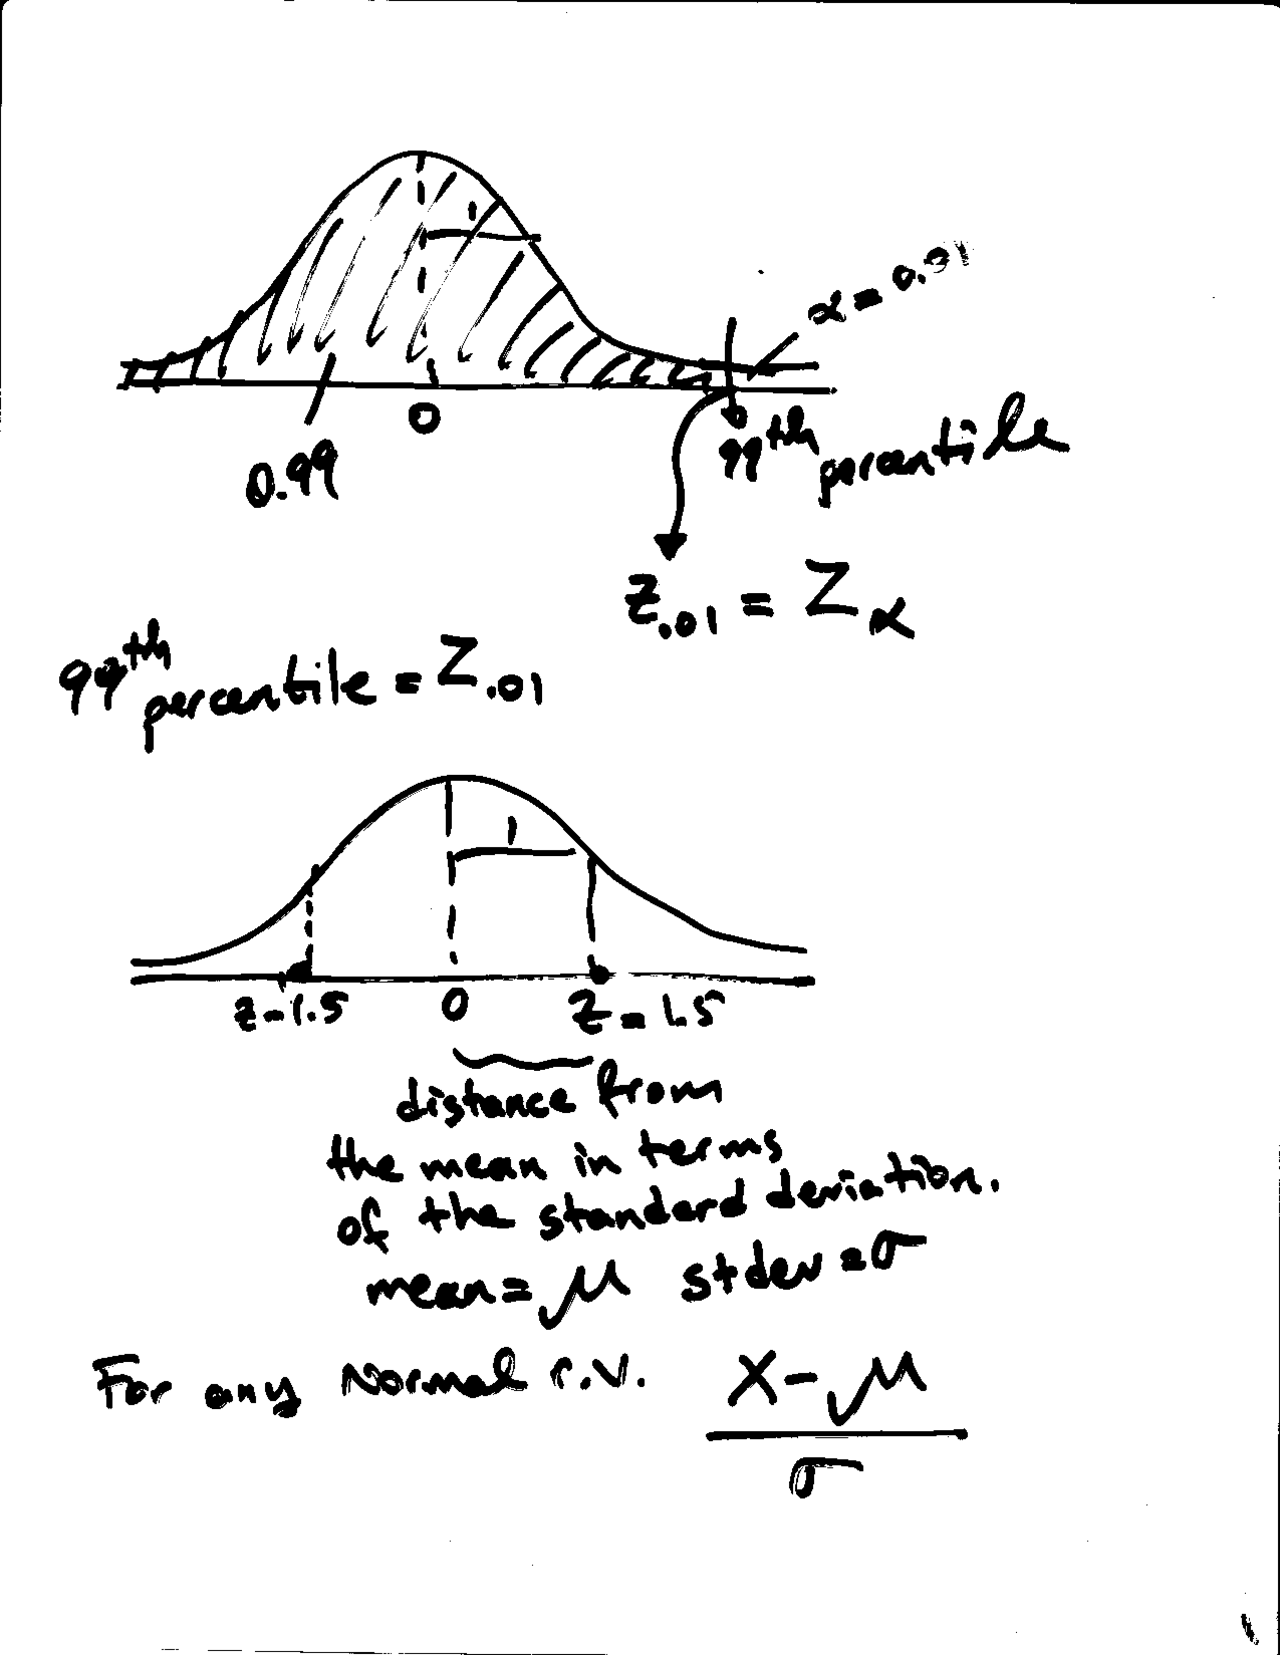 1
α = 0.01
0
0.99
99th percentile
z.01 = Zα
99th percentile = Z.01
1
z-1.5 0 Z = 1.5
distance from
the mean in terms
of the standard deviation.
mean = μ stdev = σ
For any Normal r.v. X-μ
σ